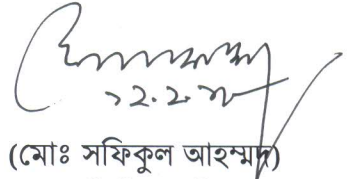 ১২.২.১৮
(মোঃ সফিকুল আহম্মদ)